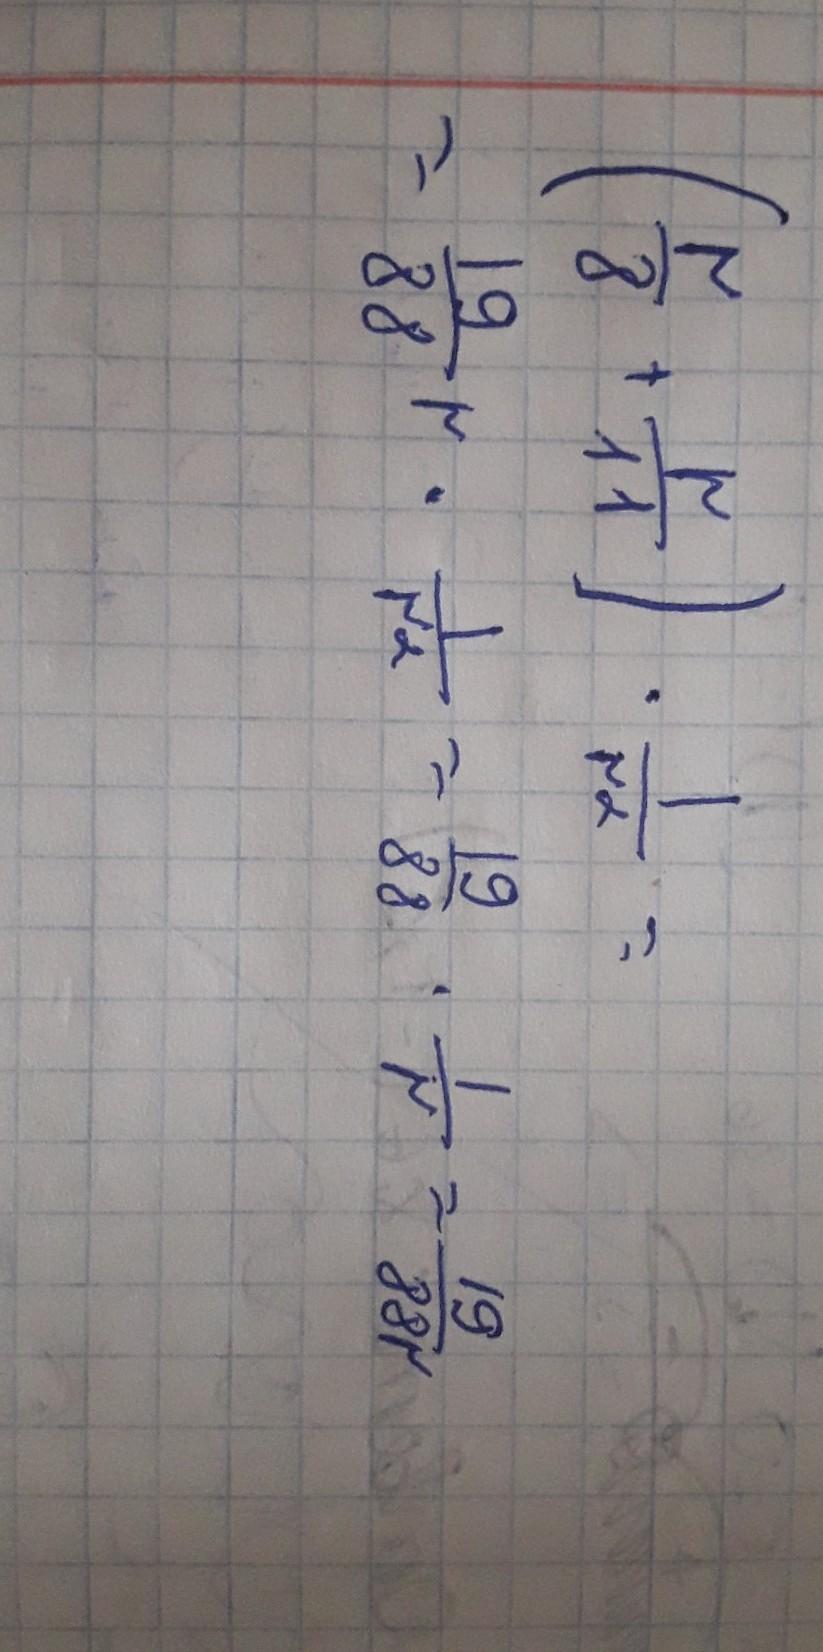 (r/8 + r/11) · 1/r² =
= 19/88 r · 1/r² = 19/88 · 1/r = 19/88r